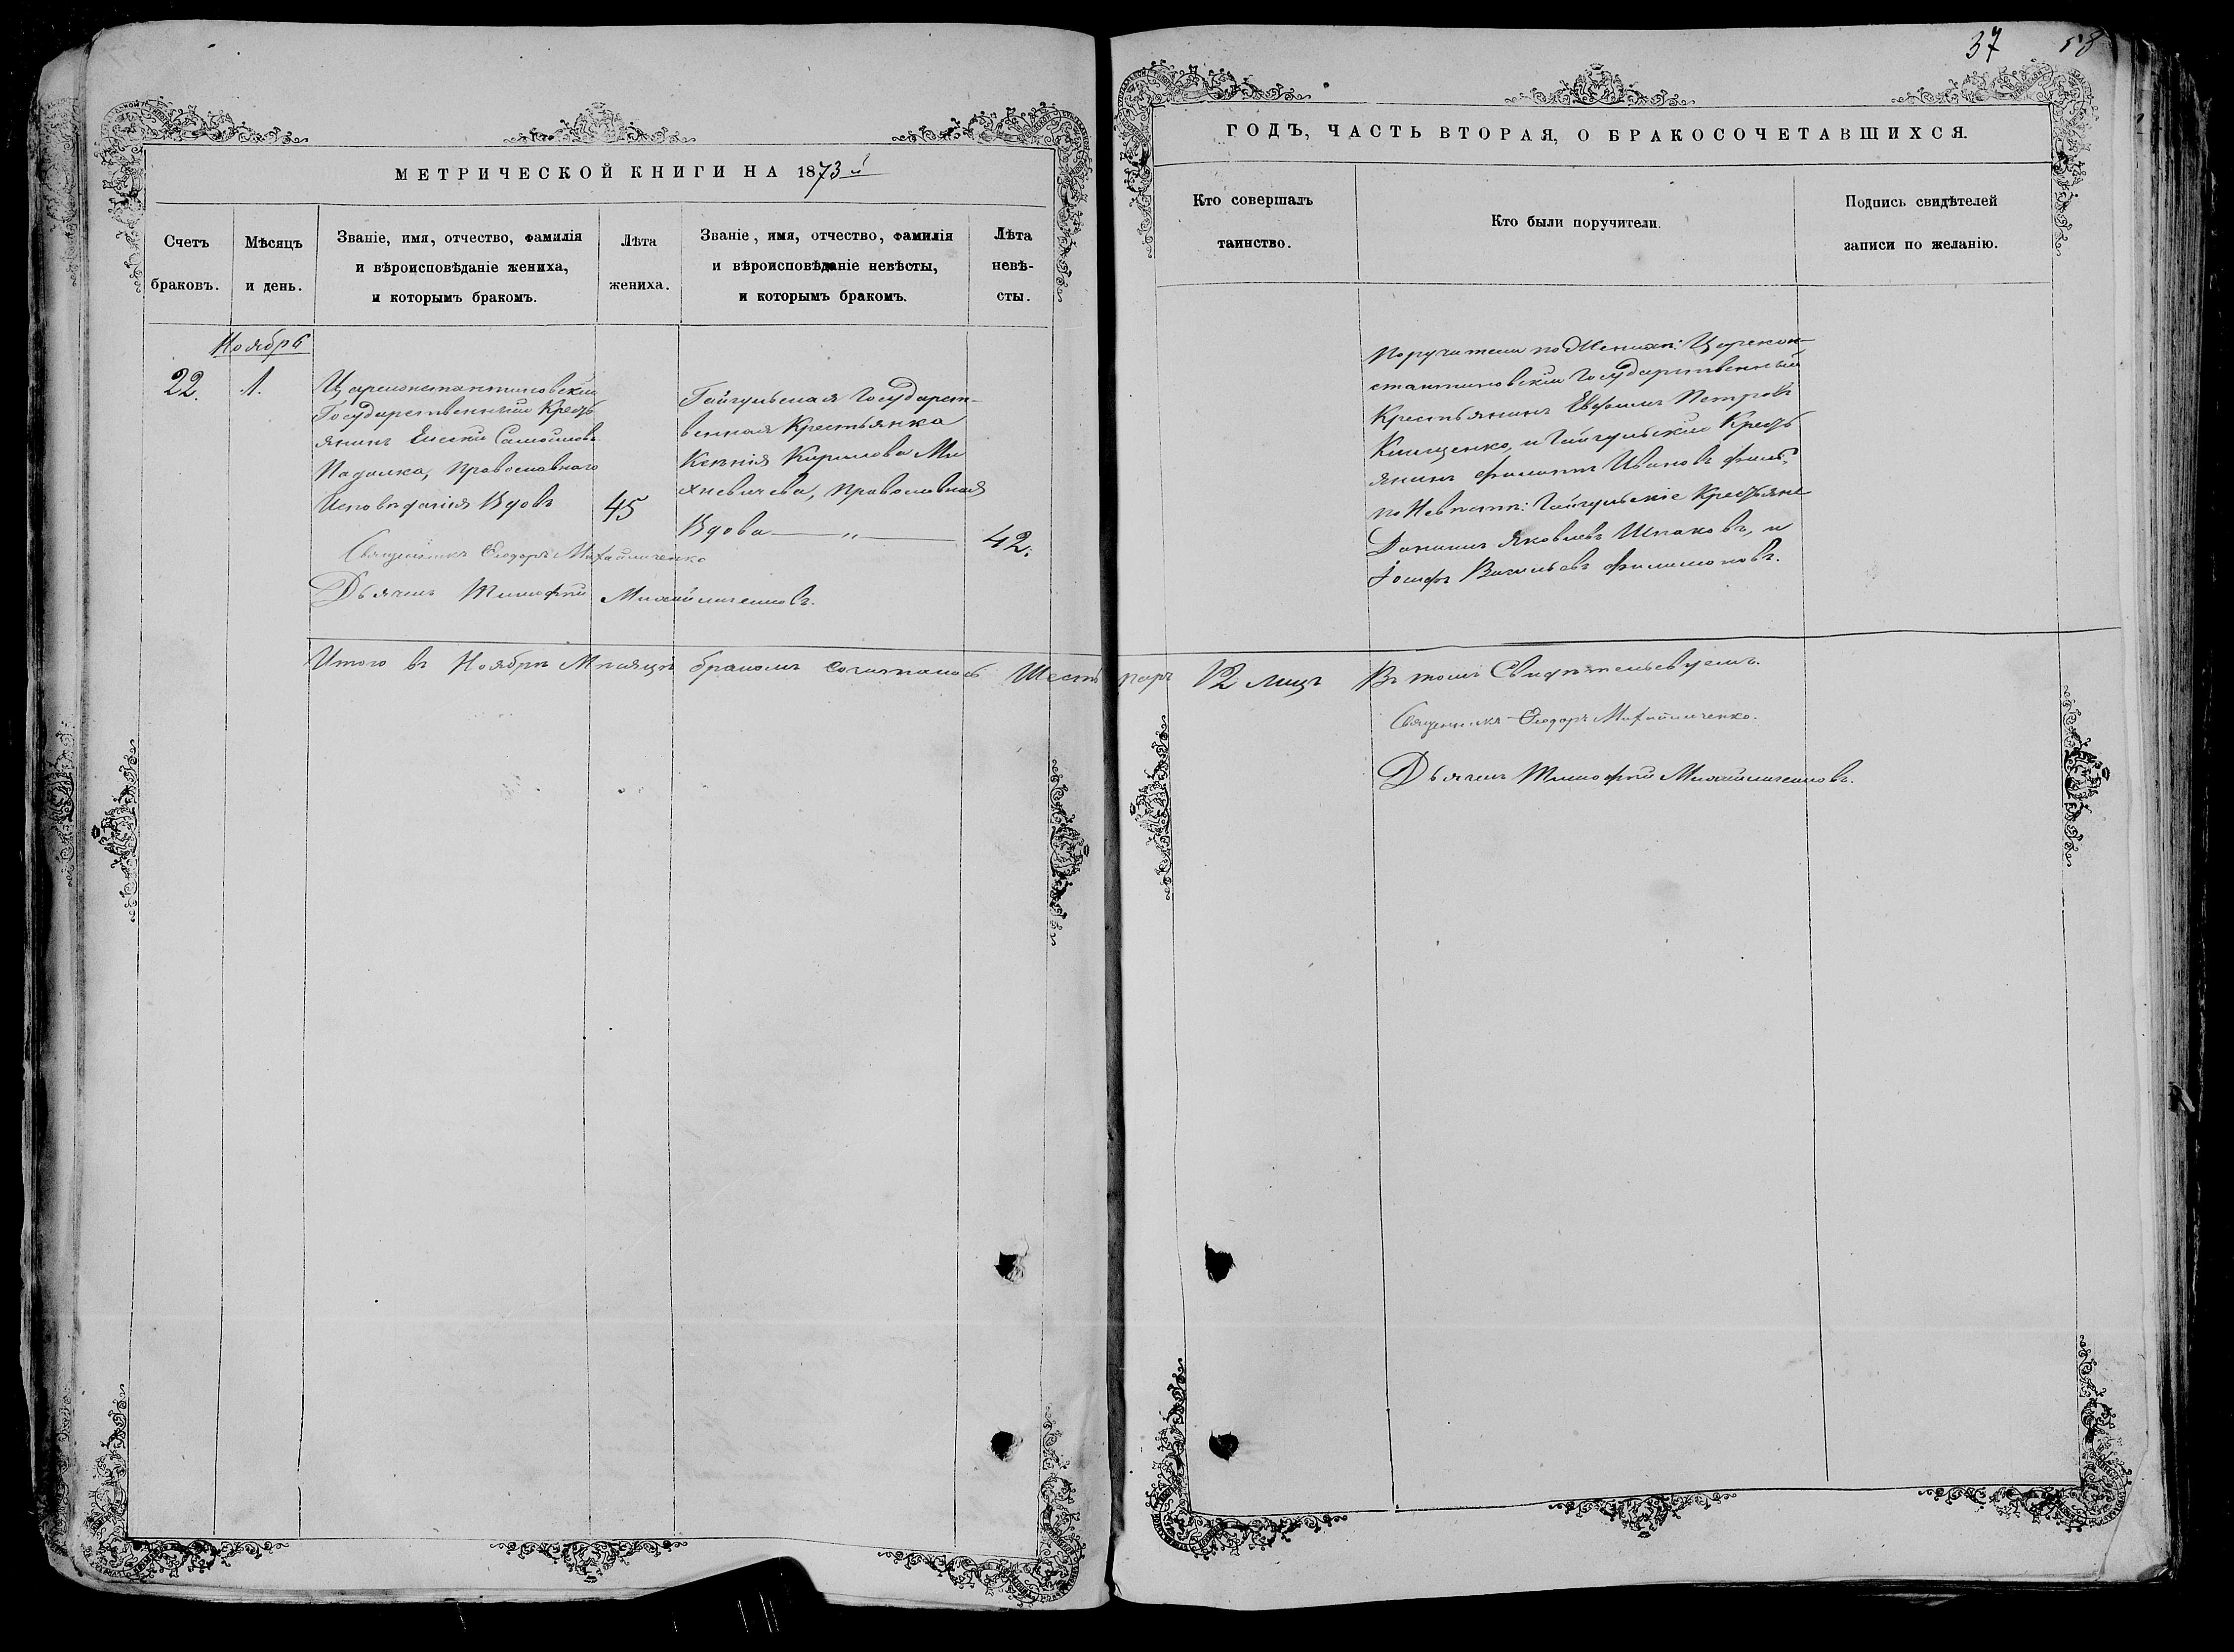 37 58
МЕТРИЧЕСКОЙ КНИГИ НА 1873й
ГОДЪ, ЧАСТЬ ВТОРАЯ, О БРАКОСОЧЕТАВШИХСЯ.
Счетъ
браковъ.
Мѣсяцъ
и день.
Званіе, имя, отчество, фамилія
и вѣроисповѣданіе жениха,
и которымъ бракомъ.
Лѣта
жениха.
Званіе, имя, отчество, фамилія
и вѣроисповѣданіе невѣсты,
и которымъ бракомъ.
Лѣта
невѣ-
сты.
Кто совершалъ
таинство.
Кто были поручители.
Подпись свидѣтелей
записи по желанію.
Ноябрь
22. 1.
Цареконстантиновскій
Государственный Кресть
янинъ Самойловъ
Падалка, Православнаго
Исповѣданія Вдовъ
45
Гайчульская Государст-
венная Крестьянка
Ксенія Кирилова Ми
хневичева, Православная
Вдова — „ —
42.
Священникъ Ѳеодоръ Михайличенко
Дьячекъ Тимофей Михайличенковъ.
Поручители по Женихѣ: Царекон-
стантиновскій Государственный
Крестьянинъ Евфимъ Петровъ
Клищенко, и Гайчульскій Кресть
янинъ Филиппъ Ивановъ
по Невѣстѣ: Гайчульскіе Крестьяне
Даніилъ Яковлевъ Шпаковъ, и
Іосифъ Васильевъ Филимоновъ.
Итого въ Ноябрѣ Мѣсяцѣ бракомъ сочеталось Шесть паръ 12 лицъ Въ томъ Свидѣтельсвуемъ.
Священникъ Ѳеодоръ Михайличенко.
Дьячекъ Тимофей Михайличенковъ.